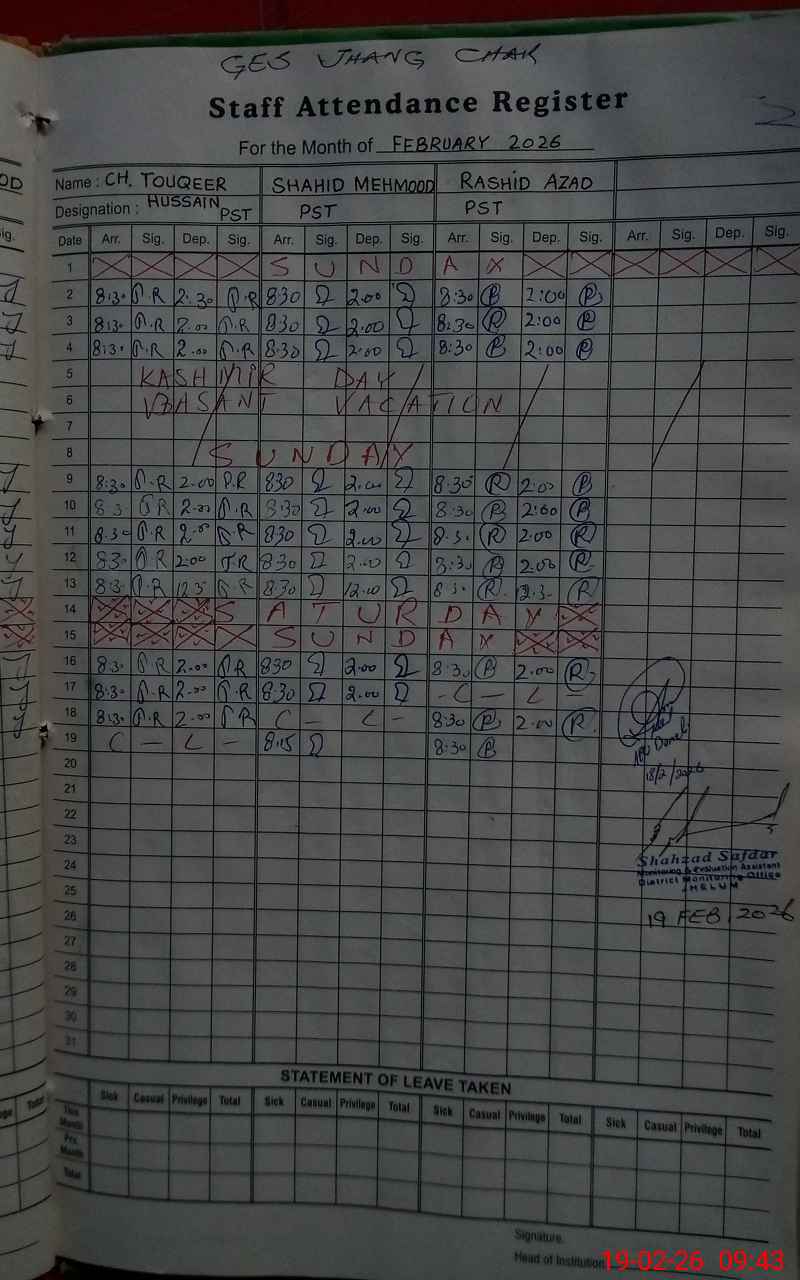 GES JHANG CHAK
Staff Attendance Register
For the Month of FEBRUARY 2026
Name : CH. TOUQEER SHAHID MEHMOOD RASHID AZAD
Designation : HUSSAIN PST PST PST
Date Arr. Sig. Dep. Sig. Arr. Sig. Dep. Sig. Arr. Sig. Dep. Sig. Arr. Sig. Dep. Sig.
1 S U N D A Y
2 8:30 P.R 2:30 P.R 830 2.00 8:30 R 2:00 R
3 8:30 P.R 2.00 P.R 830 2.00 8:30 R 2:00 R
4 8:30 P.R 2.00 P.R 8:30 2:00 8:30 R 2:00 R
5 KASHMIR DAY
6 BASANT VACATION
7
8 S U N D A Y
9 8:30 P.R 2.00 P.R 830 2.00 8:30 R 2:00 R
10 8:3 P.R 2.00 P.R 8:30 2.00 8:30 R 2:00 R
11 8:30 P.R 2.00 P.R 830 2.00 8:3 R 2:00 R
12 8:30 P.R 2:00 P.R 8:30 2.00 8:30 R 2:00 R
13 8:3 P.R 12.3 P.R 8:30 12.00 8:3 R 12:3 R
14 S A T U R D A Y
15 S U N D A Y
16 8:3 P.R 2.00 P.R 830 2.00 8:30 R 2.00 R
17 8:30 P.R 2.00 P.R 8:30 2.00 - C - L -
18 8:30 P.R 2.00 P.R C - L - 8:30 R 2:00 R
19 C - L - 8:15 8:30 R
18/2/2026
20
21
22
23
Shahzad Safdar
24
Monitoring & Evaluation Assistant
District Monitoring Office
JHELUM
25
26 19 FEB 2026
27
28
29
30
31
STATEMENT OF LEAVE TAKEN
Sick Casual Privilege Total Sick Casual Privilege Total Sick Casual Privilege Total Sick Casual Privilege Total
This Month
Pre. Month
Total
Signature.
Head of Institution
19-02-26 09:43